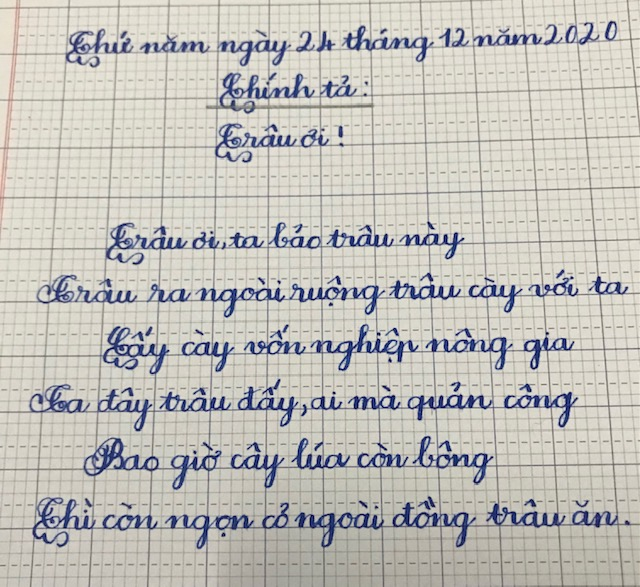 Thứ năm ngày 24 tháng 12 năm 2020
Chính tả:
Trâu ơi!
Trâu ơi, ta bảo trâu này
Trâu ra ngoài ruộng trâu cày với ta
Cấy cày vốn nghiệp nông gia
Ta đây trâu đấy, ai mà quản công
Bao giờ cây lúa còn bông
Thì còn ngọn cỏ ngoài đồng trâu ăn.